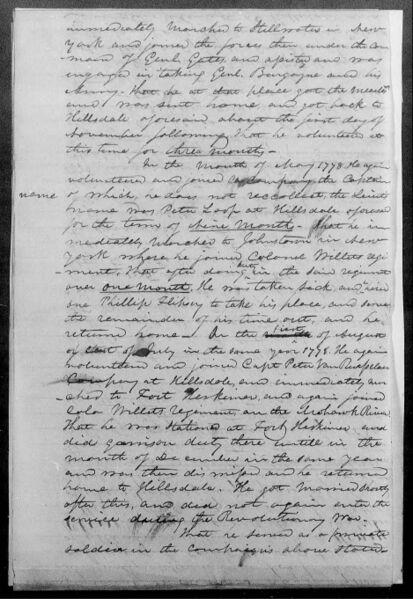 immediately Marched to Stillwater in New
York and joined the forces then under the com
mand of Genl. Gates, and assisted and was
engaged in taking Genl. Burgoyne and his
Army - that he at that place got the measles
and was sent home, and got back to
Hillsdale aforesaid about the first day of
November following, that he volunteered at
this time for three months -
In the month of May 1778. He again
volunteered and joined a company the Captain
name
of which, he does not reccollect, the Lieut
name was Peter Loop at Hillsdale aforesaid
for the term of Nine Month - that he im
mediately Marched to Johnstown in New
York where he joined Colonel Willets regi
ment, that after doing duty in the said regiment
over one Month, He was taken sick and hired
one Phillip to take his place, and serve
the remainder of his time out, and he
return home - On the first of August
or last of July in the same year 1778. He again
volunteered and joined Capt Peter Van Rensselaer
Company at Hillsdale, and immediately mar
ched to Fort Herkimer, and again joined
Colo Willets Regiment, on the Mohawk River
That he was stationed at Fort Herkimer and
did garrison duty there untill in the
month of December in the same year
and was then dismissed and he returned
home to Hillsdale. He got Married shortly
after this, and did not again enter the
service during the Revolutionary War.
That he served as a private
soldier in the campaigns above stated